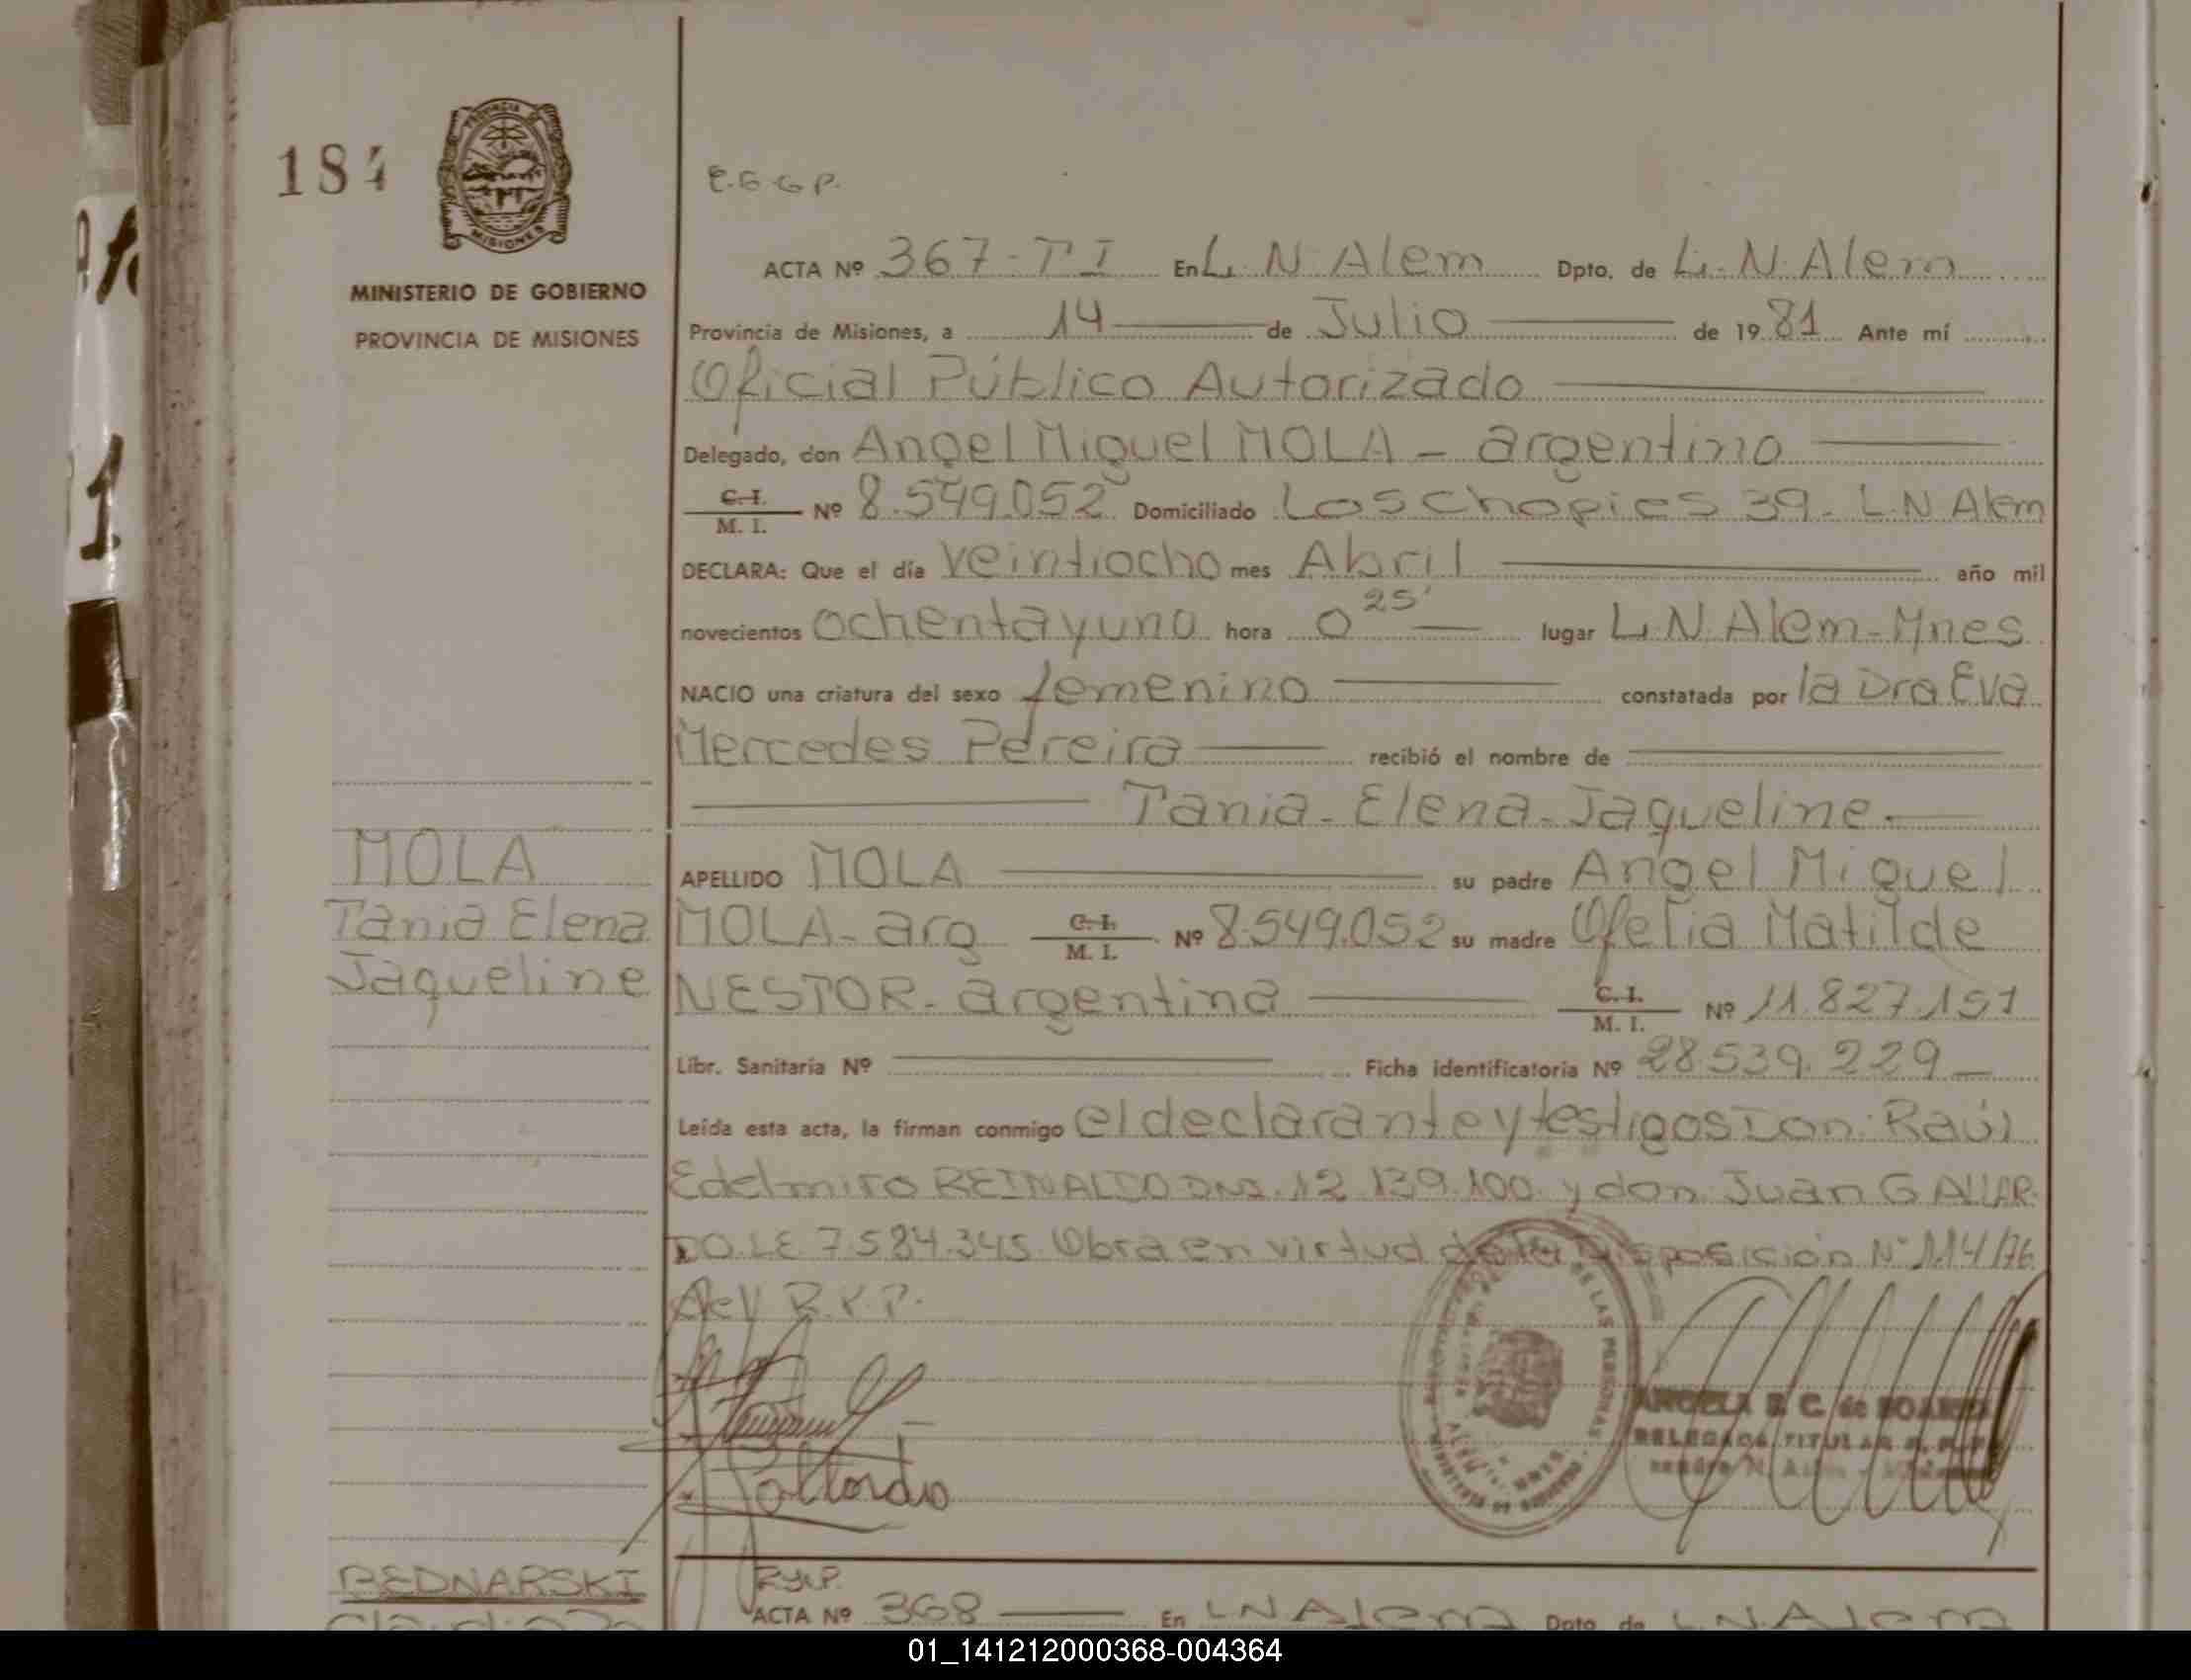 184
PROVINCIA DE
MISIONES
MINISTERIO DE GOBIERNO
PROVINCIA DE MISIONES
ACTA Nº 367-TI En L. N. Alem Dpto. de L. N. Alem
Provincia de Misiones, a 14 de Julio de 19 81 Ante mí
Oficial Público Autorizado
Delegado, don Angel Miguel MOLA - argentino
C. I.
M. I. Nº 8.549.052 Domiciliado Los Chopies 39 - L.N Alem
DECLARA: Que el día veintiocho mes Abril año mil
novecientos ochentayuno hora 0 25' lugar L.N. Alem-Mnes
NACIO una criatura del sexo femenino constatada por la Dra Eva
Mercedes Pereira recibió el nombre de
Tania - Elena - Jaqueline.-
APELLIDO MOLA su padre Angel Miguel
MOLA - arg C. I.
M. I. Nº 8.549.052 su madre Ofelia Matilde
NESTOR - argentina C. I.
M. I. Nº 11.827.151
Libr. Sanitaria Nº Ficha identificatoria Nº 28.539.229
Leída esta acta, la firman conmigo el declarante y testigos Don: Raúl
Edelmiro REINALDO DNI. 12.139.100 y don Juan GALLAR-
DO LE 7584.345 Obra en virtud de la Disposición Nº 114/76
del R.P.
MOLA
Tania Elena
Jaqueline
Gallardo
DE LAS PERSONAS
ANGELA E. C. de
DELEGADA TITULAR R. P.
BEDNARSKI
ACTA Nº 368 En L N Alem Dpto de L.N. Alem
01_141212000368-004364